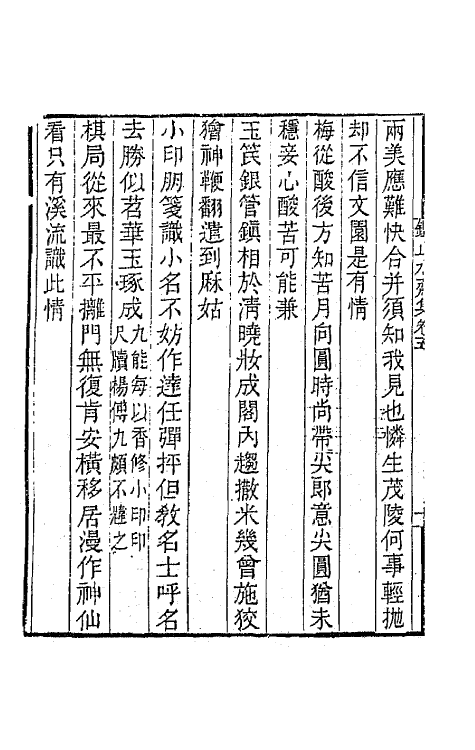 兩美應難快合并須知我見也憐生茂陵何事輕拋
却不信文園是有情
梅從酸後方知苦月向圓時尚帶尖郎意尖圓猶未
穩妾心酸苦可能兼
玉筦銀管鎮相於清曉妝成閣內趨撒米幾曾施狡
獪神鞭翻遣到麻姑
小印朋箋識小名不妨作達任彈抨但教名士呼名
去勝似苕華玉琢成九能每以香修小印印
尺牘楊傅九頗不韙之
棋局從來最不平攤門無復肯安橫移居漫作神仙
看只有溪流識此情
鑑止水齋集卷五